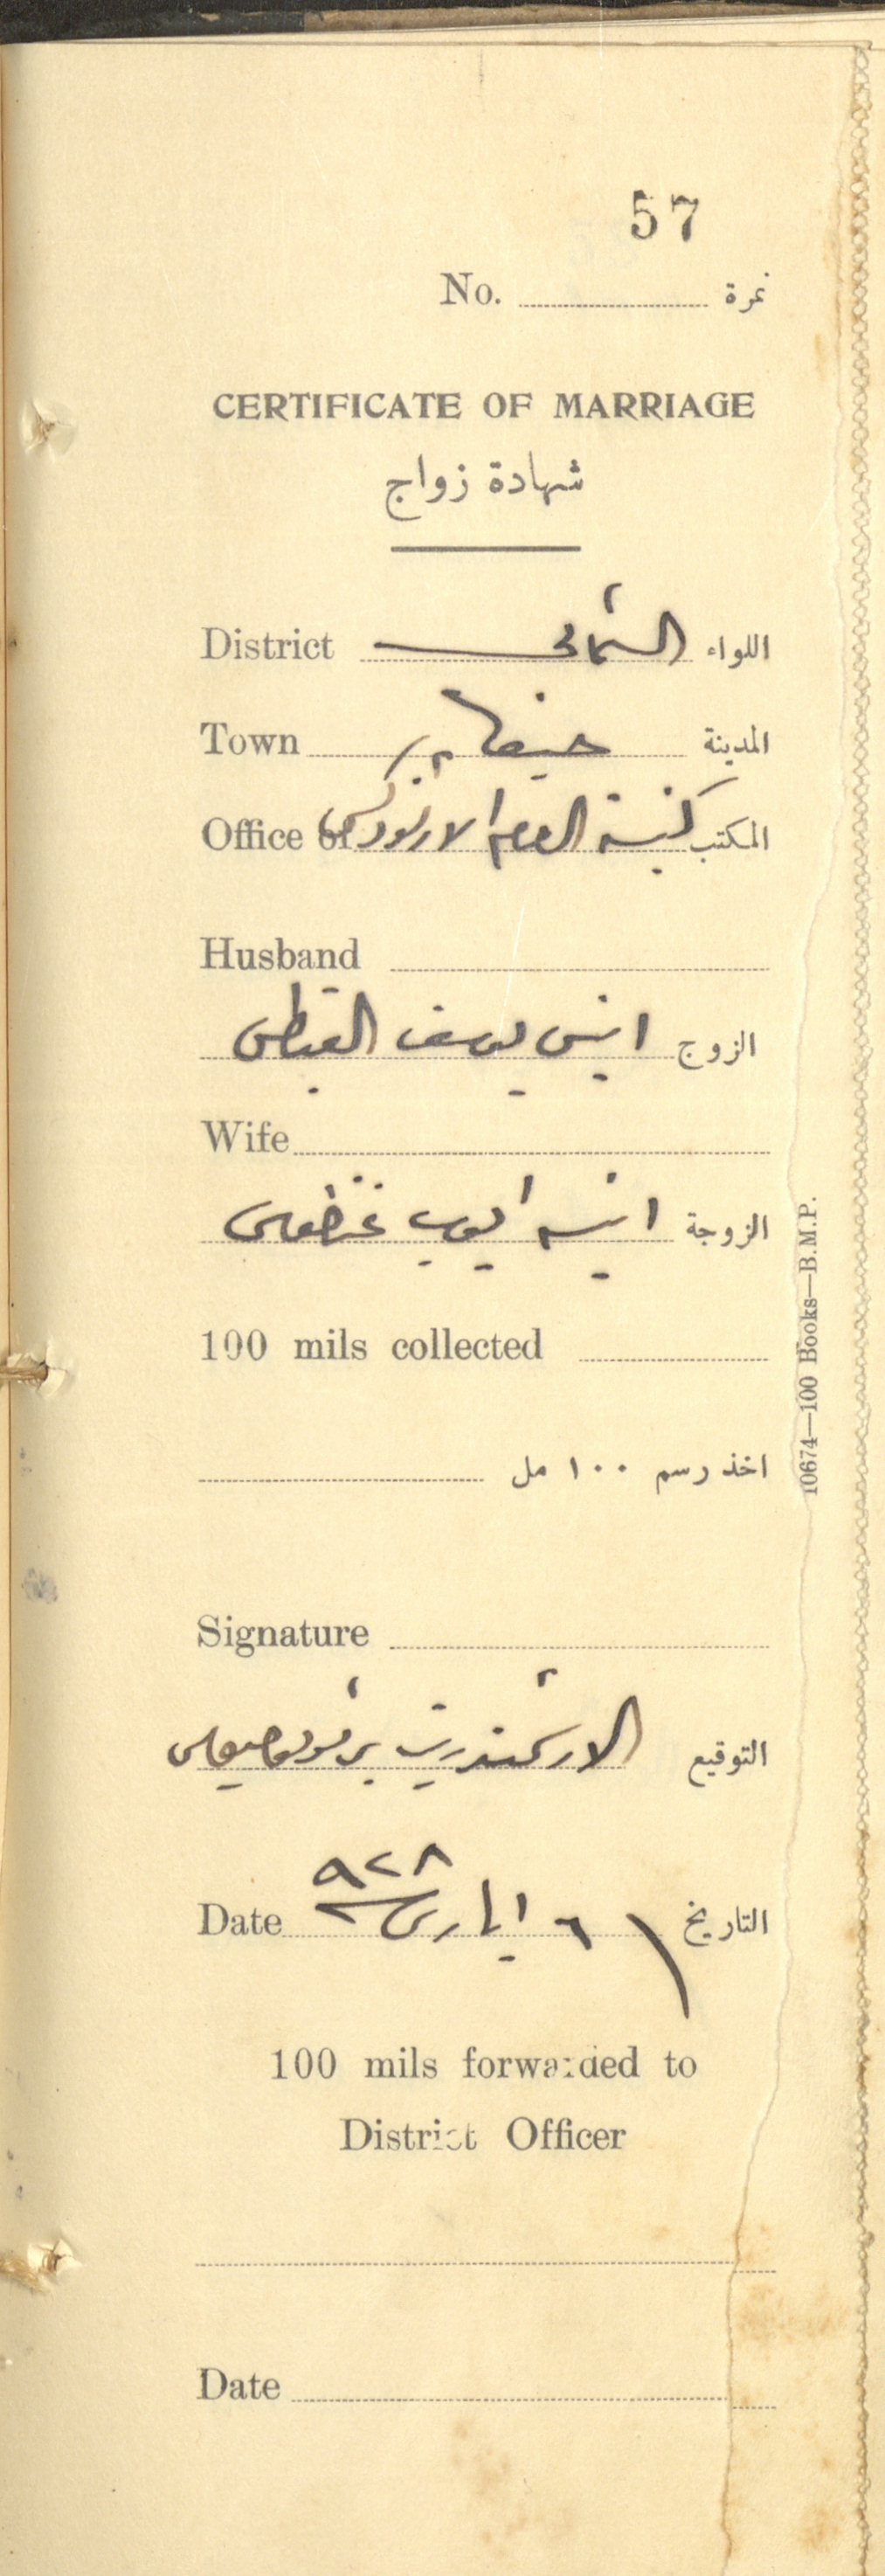 57
No. نمرة
CERTIFICATE OF MARRIAGE
شهادة زواج
District الشمالي اللواء
Town حيفا المدينة
Office of كنيسة الروم الارثوذكس المكتب
Husband
الزوج انيس يوسف القبطي
Wife
الزوجة انيسه ايوب
100 mils collected
اخذ رسم ١٠٠ مل
Signature
التوقيع الارشمندريت
Date ٦ ايار سنة ٩٢٨ التاريخ
100 mils forwarded to
District Officer
Date
10674—100 Books—B.M.P.